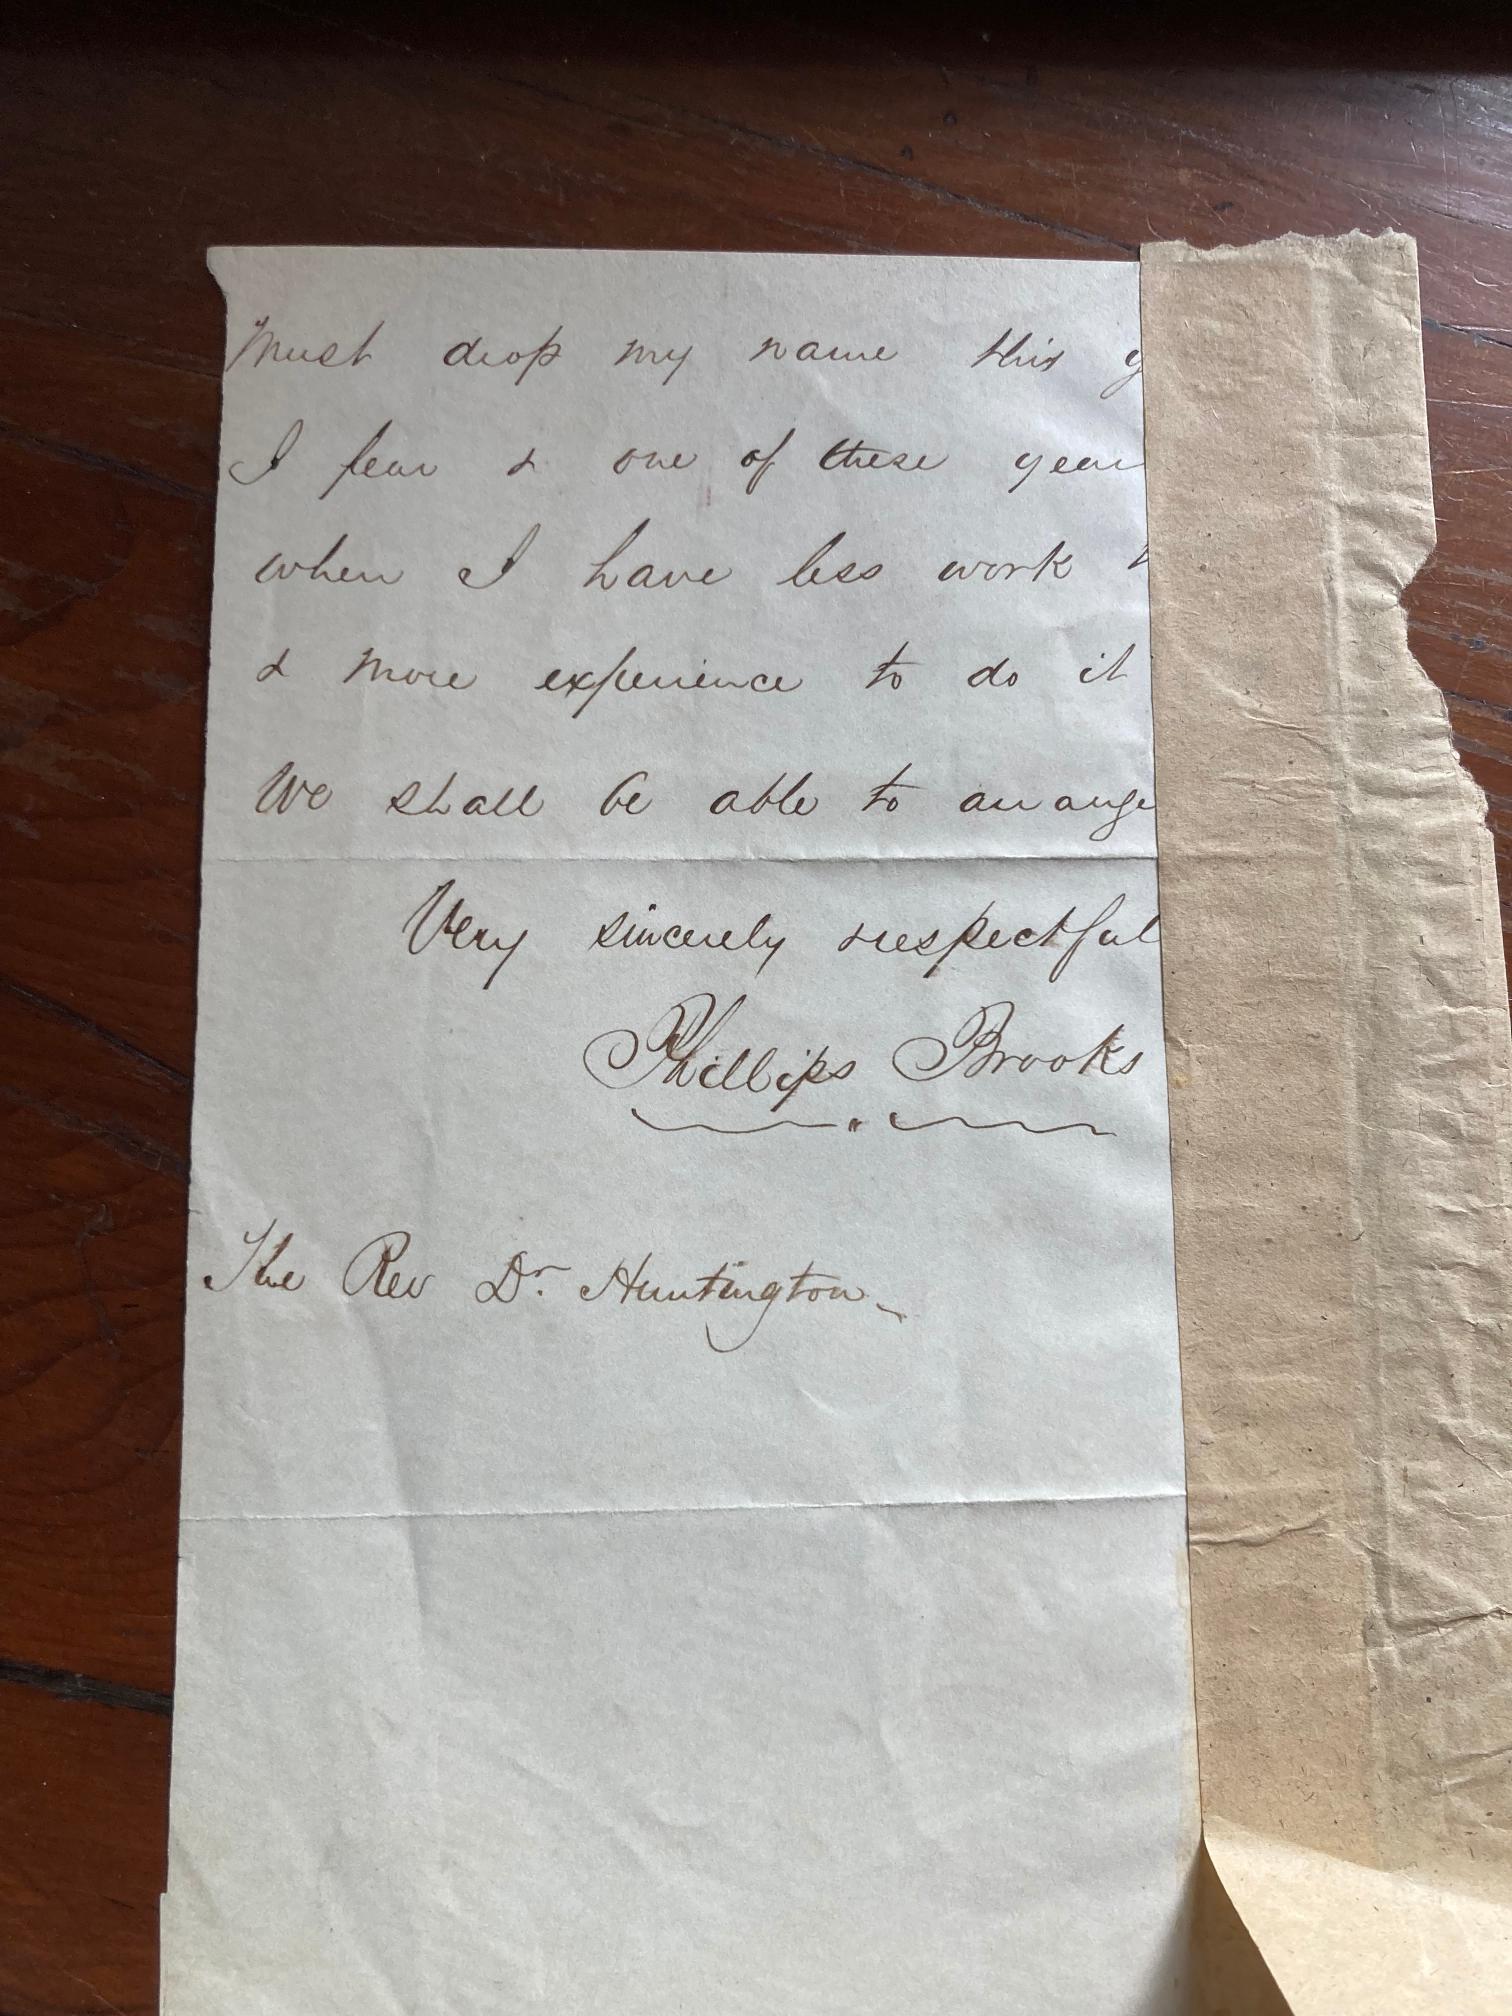 Must drop my name this y
I fear & one of these year
when I have less work t
& more experience to do it
We shall be able to arrange
Very sincerely & respectful
Phillips Brooks
The Rev Dr. Huntington